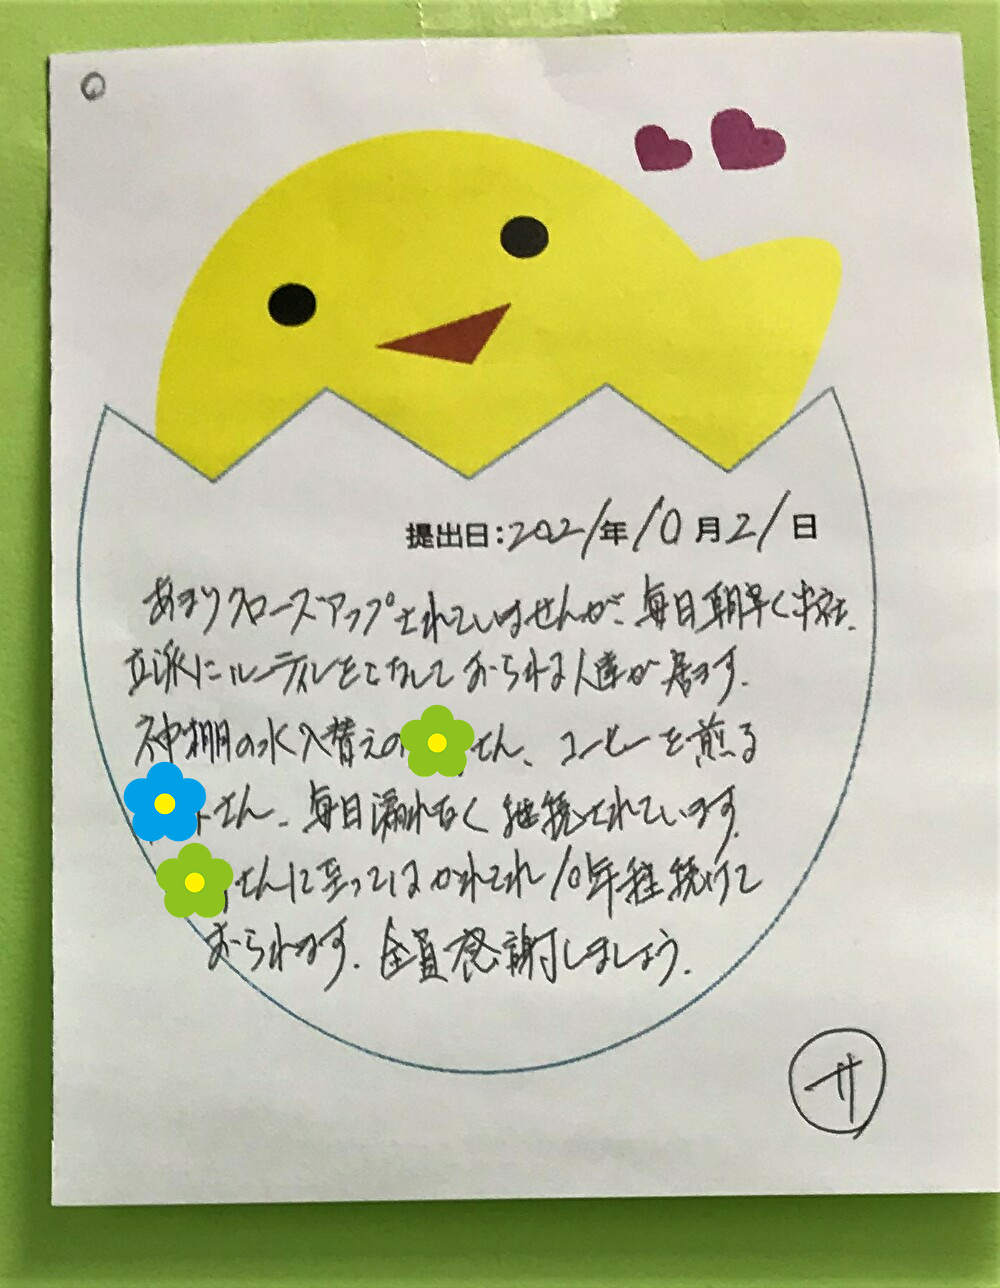 提出日:2021年10月21日
あまりクローズアップされていませんが、毎日朝早く出社、
立派にルーティンをこなしておられる人達が居ます。
神棚の水入替えの さん、コーヒーを煎る
さん。毎日漏れなく継続されています。
さんに至ってはかれこれ10年程続けて
おられます。全員感謝しましょう。
サ